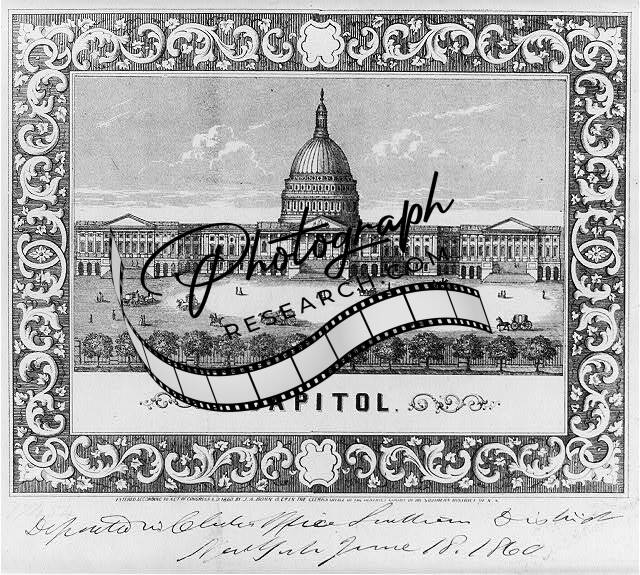 Photograph
RESEARCH.COM
CAPITOL.
ENTERED ACCORDING TO ACT OF CONGRESS A.D. 1860 BY J. A. BONN & CO IN THE CLERKS OFFICE OF THE DISTRICT COURT OF THE SOUTHERN DISTRICT OF N.Y.
Deposited in Clerks Office Southern District
New York June 18. 1860